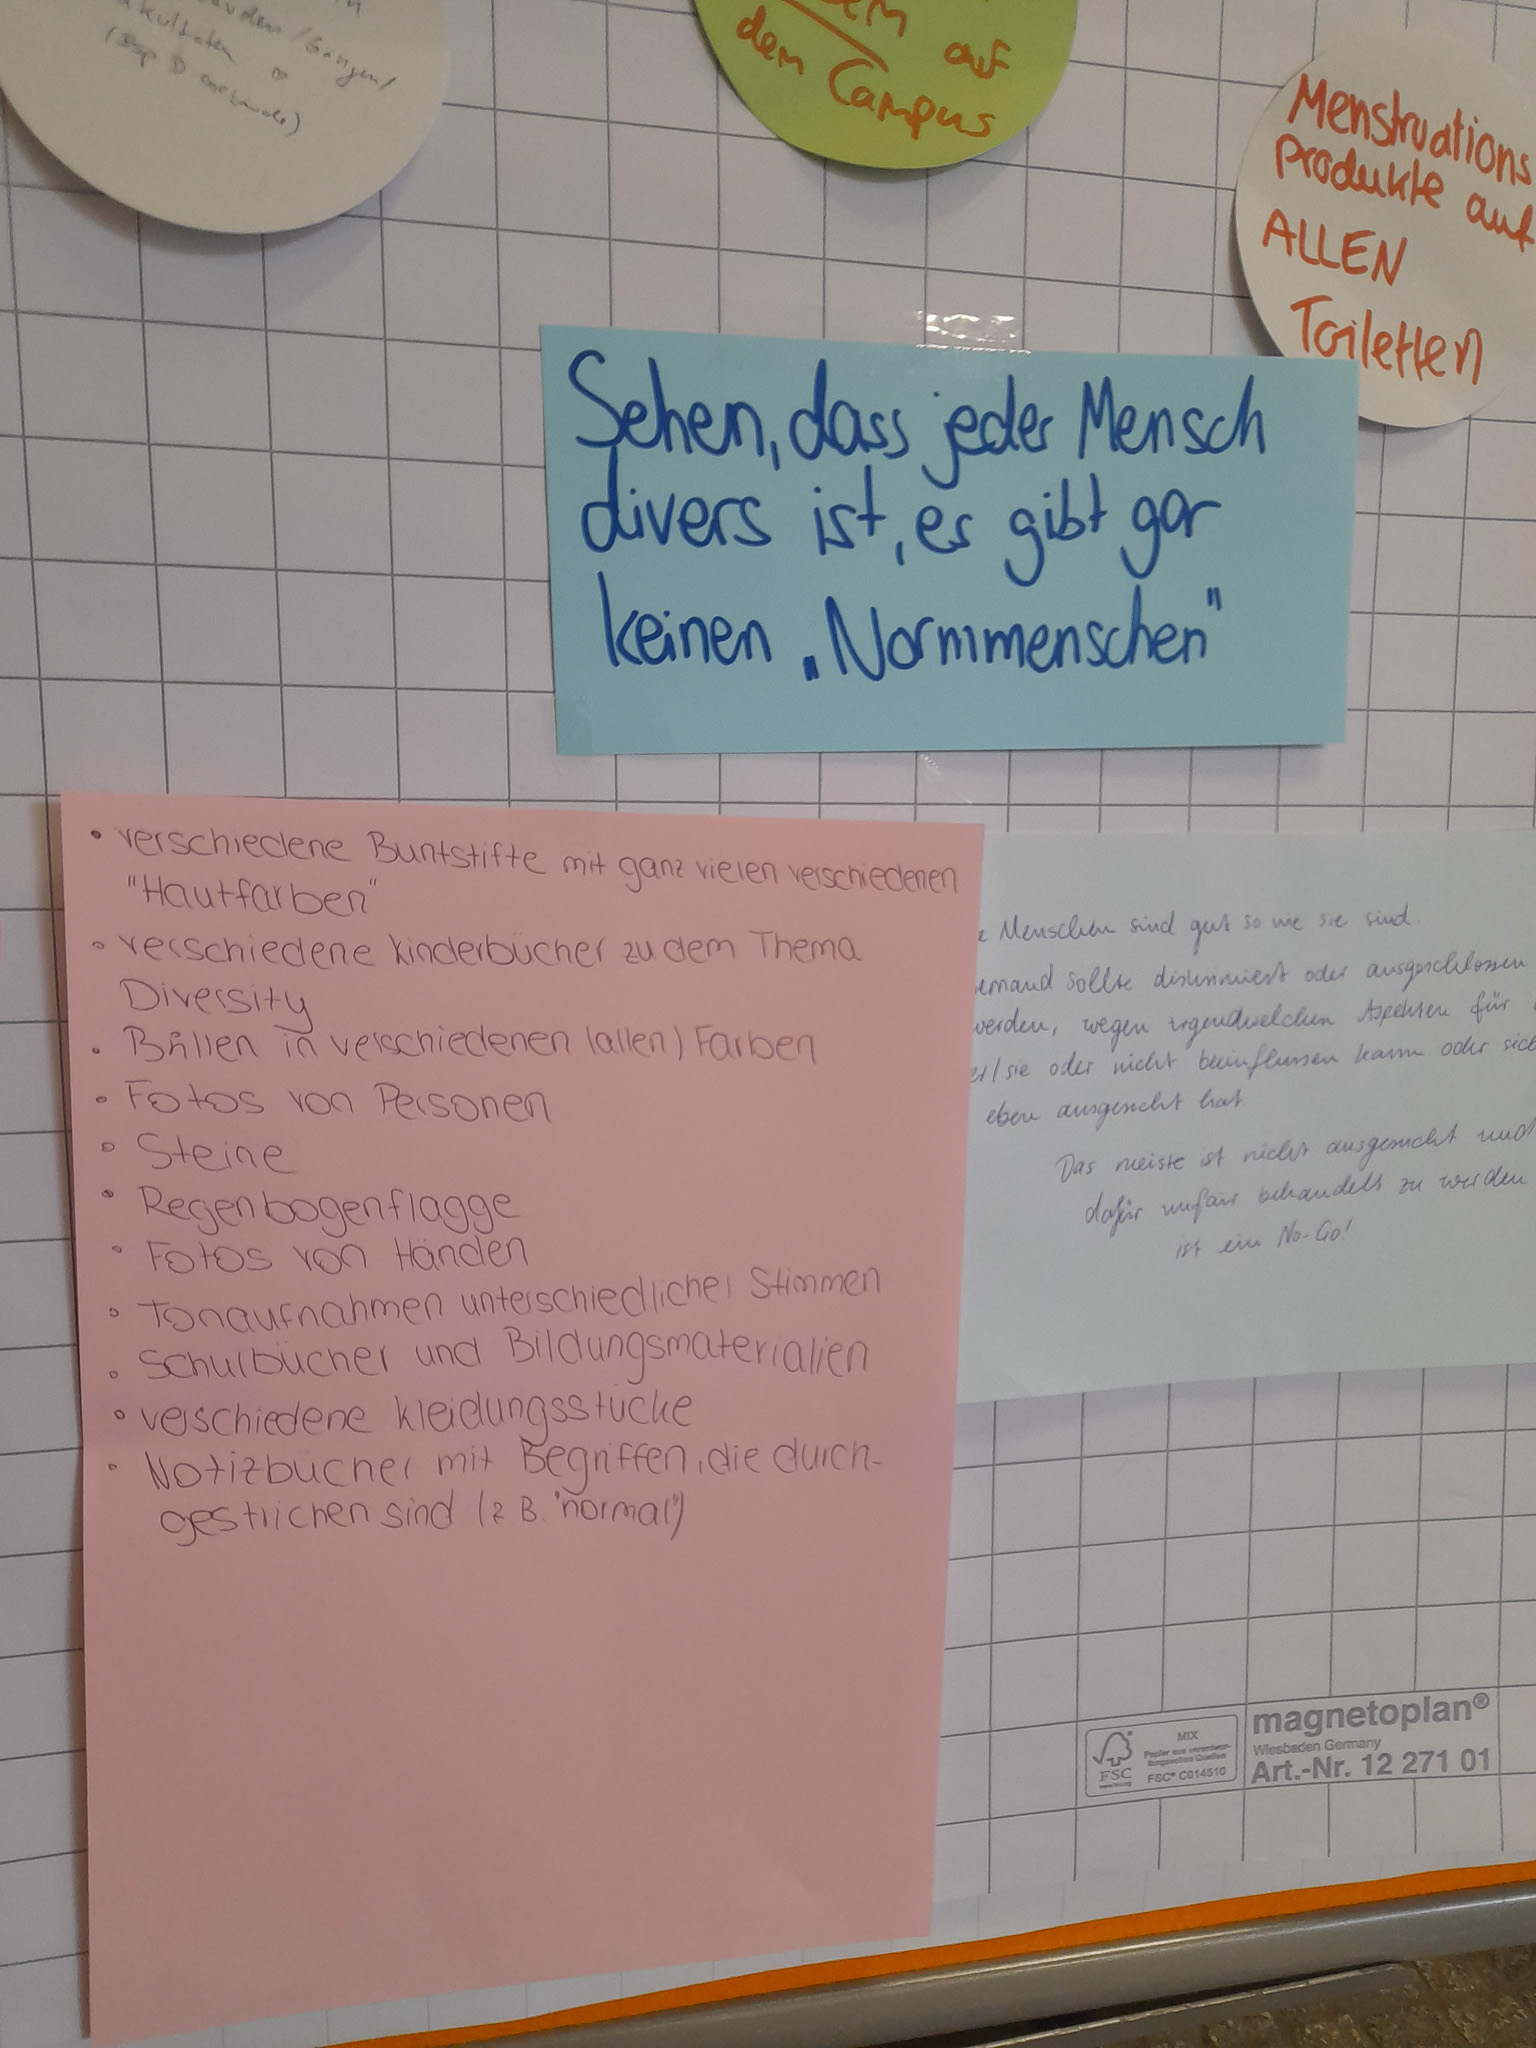 (Bsp D
dem auf
dem Campus
Menstruations
produkte auf
ALLEN
Toiletten
Sehen, dass jeder Mensch
divers ist, es gibt gar
keinen „Normmenschen"
• verschiedene Buntstifte mit ganz vielen verschiedenen
"Hautfarben"
• verschiedene Kinderbücher zu dem Thema
Diversity
• in verschiedenen (allen) Farben
• Fotos von Personen
• Steine
• Regenbogenflagge
• Fotos von Händen
• Tonaufnahmen unterschiedlicher Stimmen
• Schulbücher und Bildungsmaterialien
• verschiedene Kleidungsstücke
• Notizbücher mit Begriffen, die durch-
gestrichen sind (z B. "normal")
Menschen sind gut so wie sie sind.
sollte diskriminiert oder ausgeschlossen
werden, wegen irgendwelchen Aspekten für
er/sie oder nicht beeinflussen kann oder sich
eben ausgesucht hat
Das meiste ist nicht ausgesucht und
dafür unfair behandelt zu werden
ist ein No-Go!
FSC
MIX
Papier aus verantwor-
tungsvollen Quellen
FSC® C014510
magnetoplan®
Wiesbaden Germany
Art.-Nr. 12 271 01